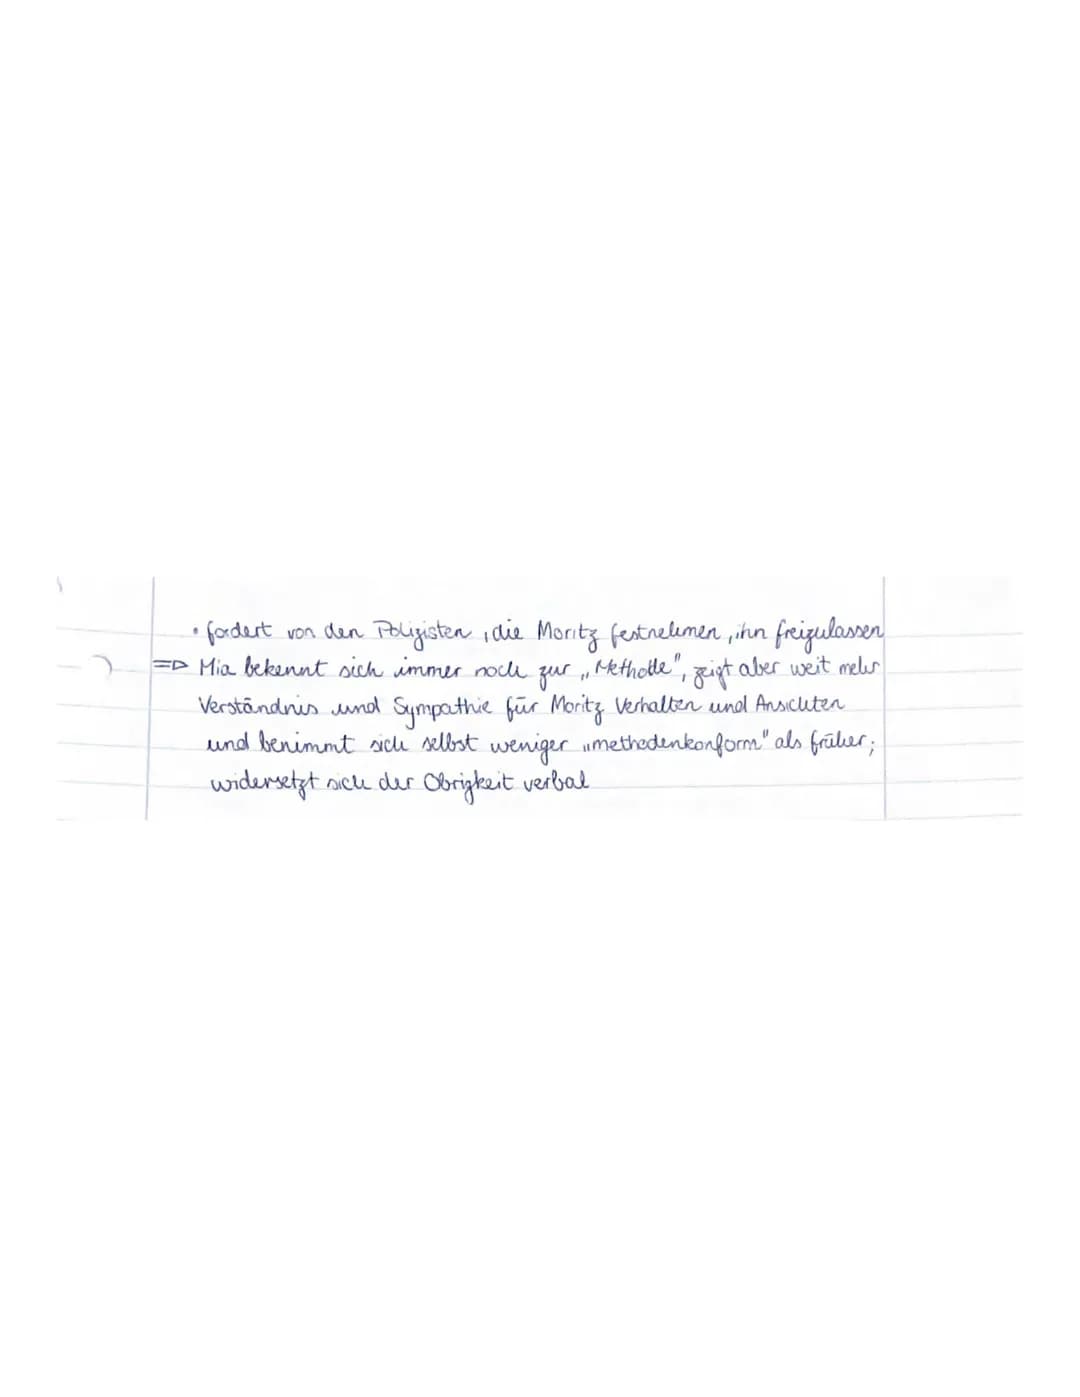 • fordert von den Polizisten, die Moritz festnehmen, ihn freizulassen
=> Mia bekennt sich immer noch zur „Methode", zeigt aber weit mehr
Verständnis und Sympathie für Moritz Verhalten und Ansichten
und benimmt sich selbst weniger „methodenkonform" als früher;
widersetzt sich der Obrigkeit verbal